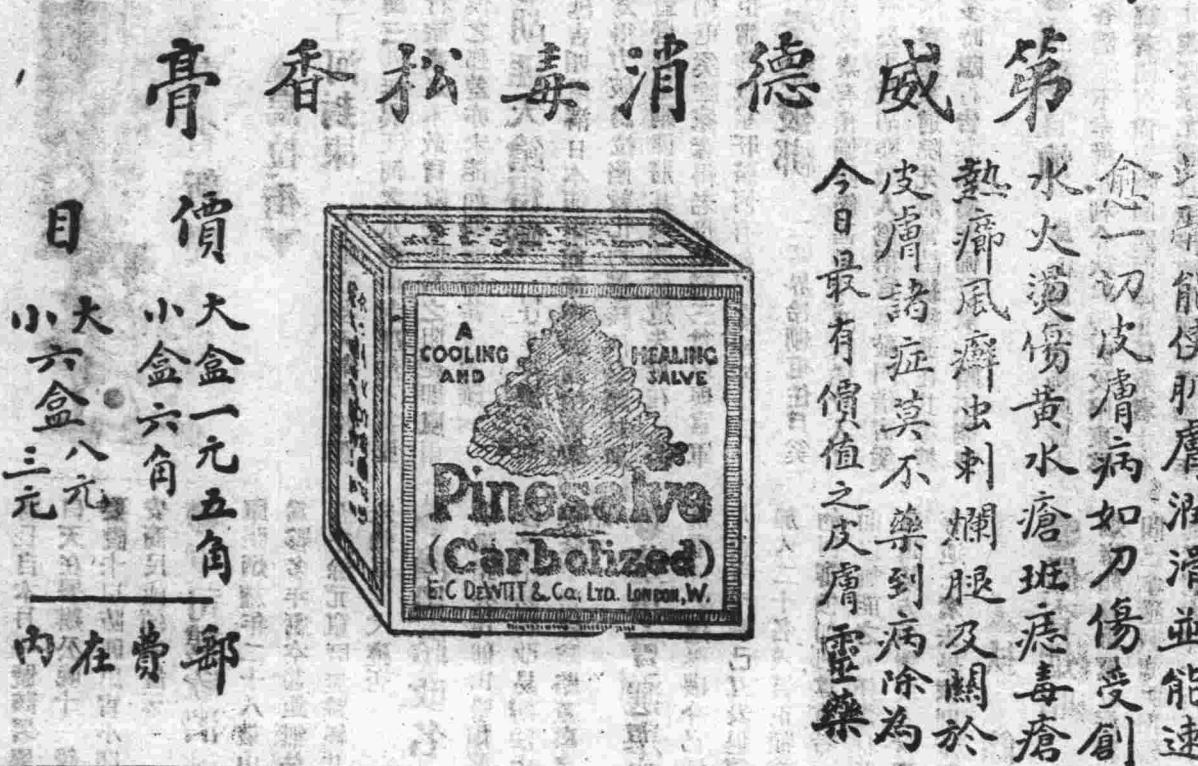 第威德消毒松香膏
此膏能使肌膚潤滑並能速
愈一切皮膚病如刀傷受創
水火燙傷黃水瘡班痣毒瘡
熱癤風癬虫刺爛腿及關於
皮膚諸症莫不藥到病除為
今日最有價值之皮膚靈藥
A COOLING AND
HEALING SALVE
Pinesalve
(Carbolized)
E.C DEWITT & Co., LTD. LONDON, W.
價目
大盒一元五角
小盒六角
大小六盒八元三元
郵費在內